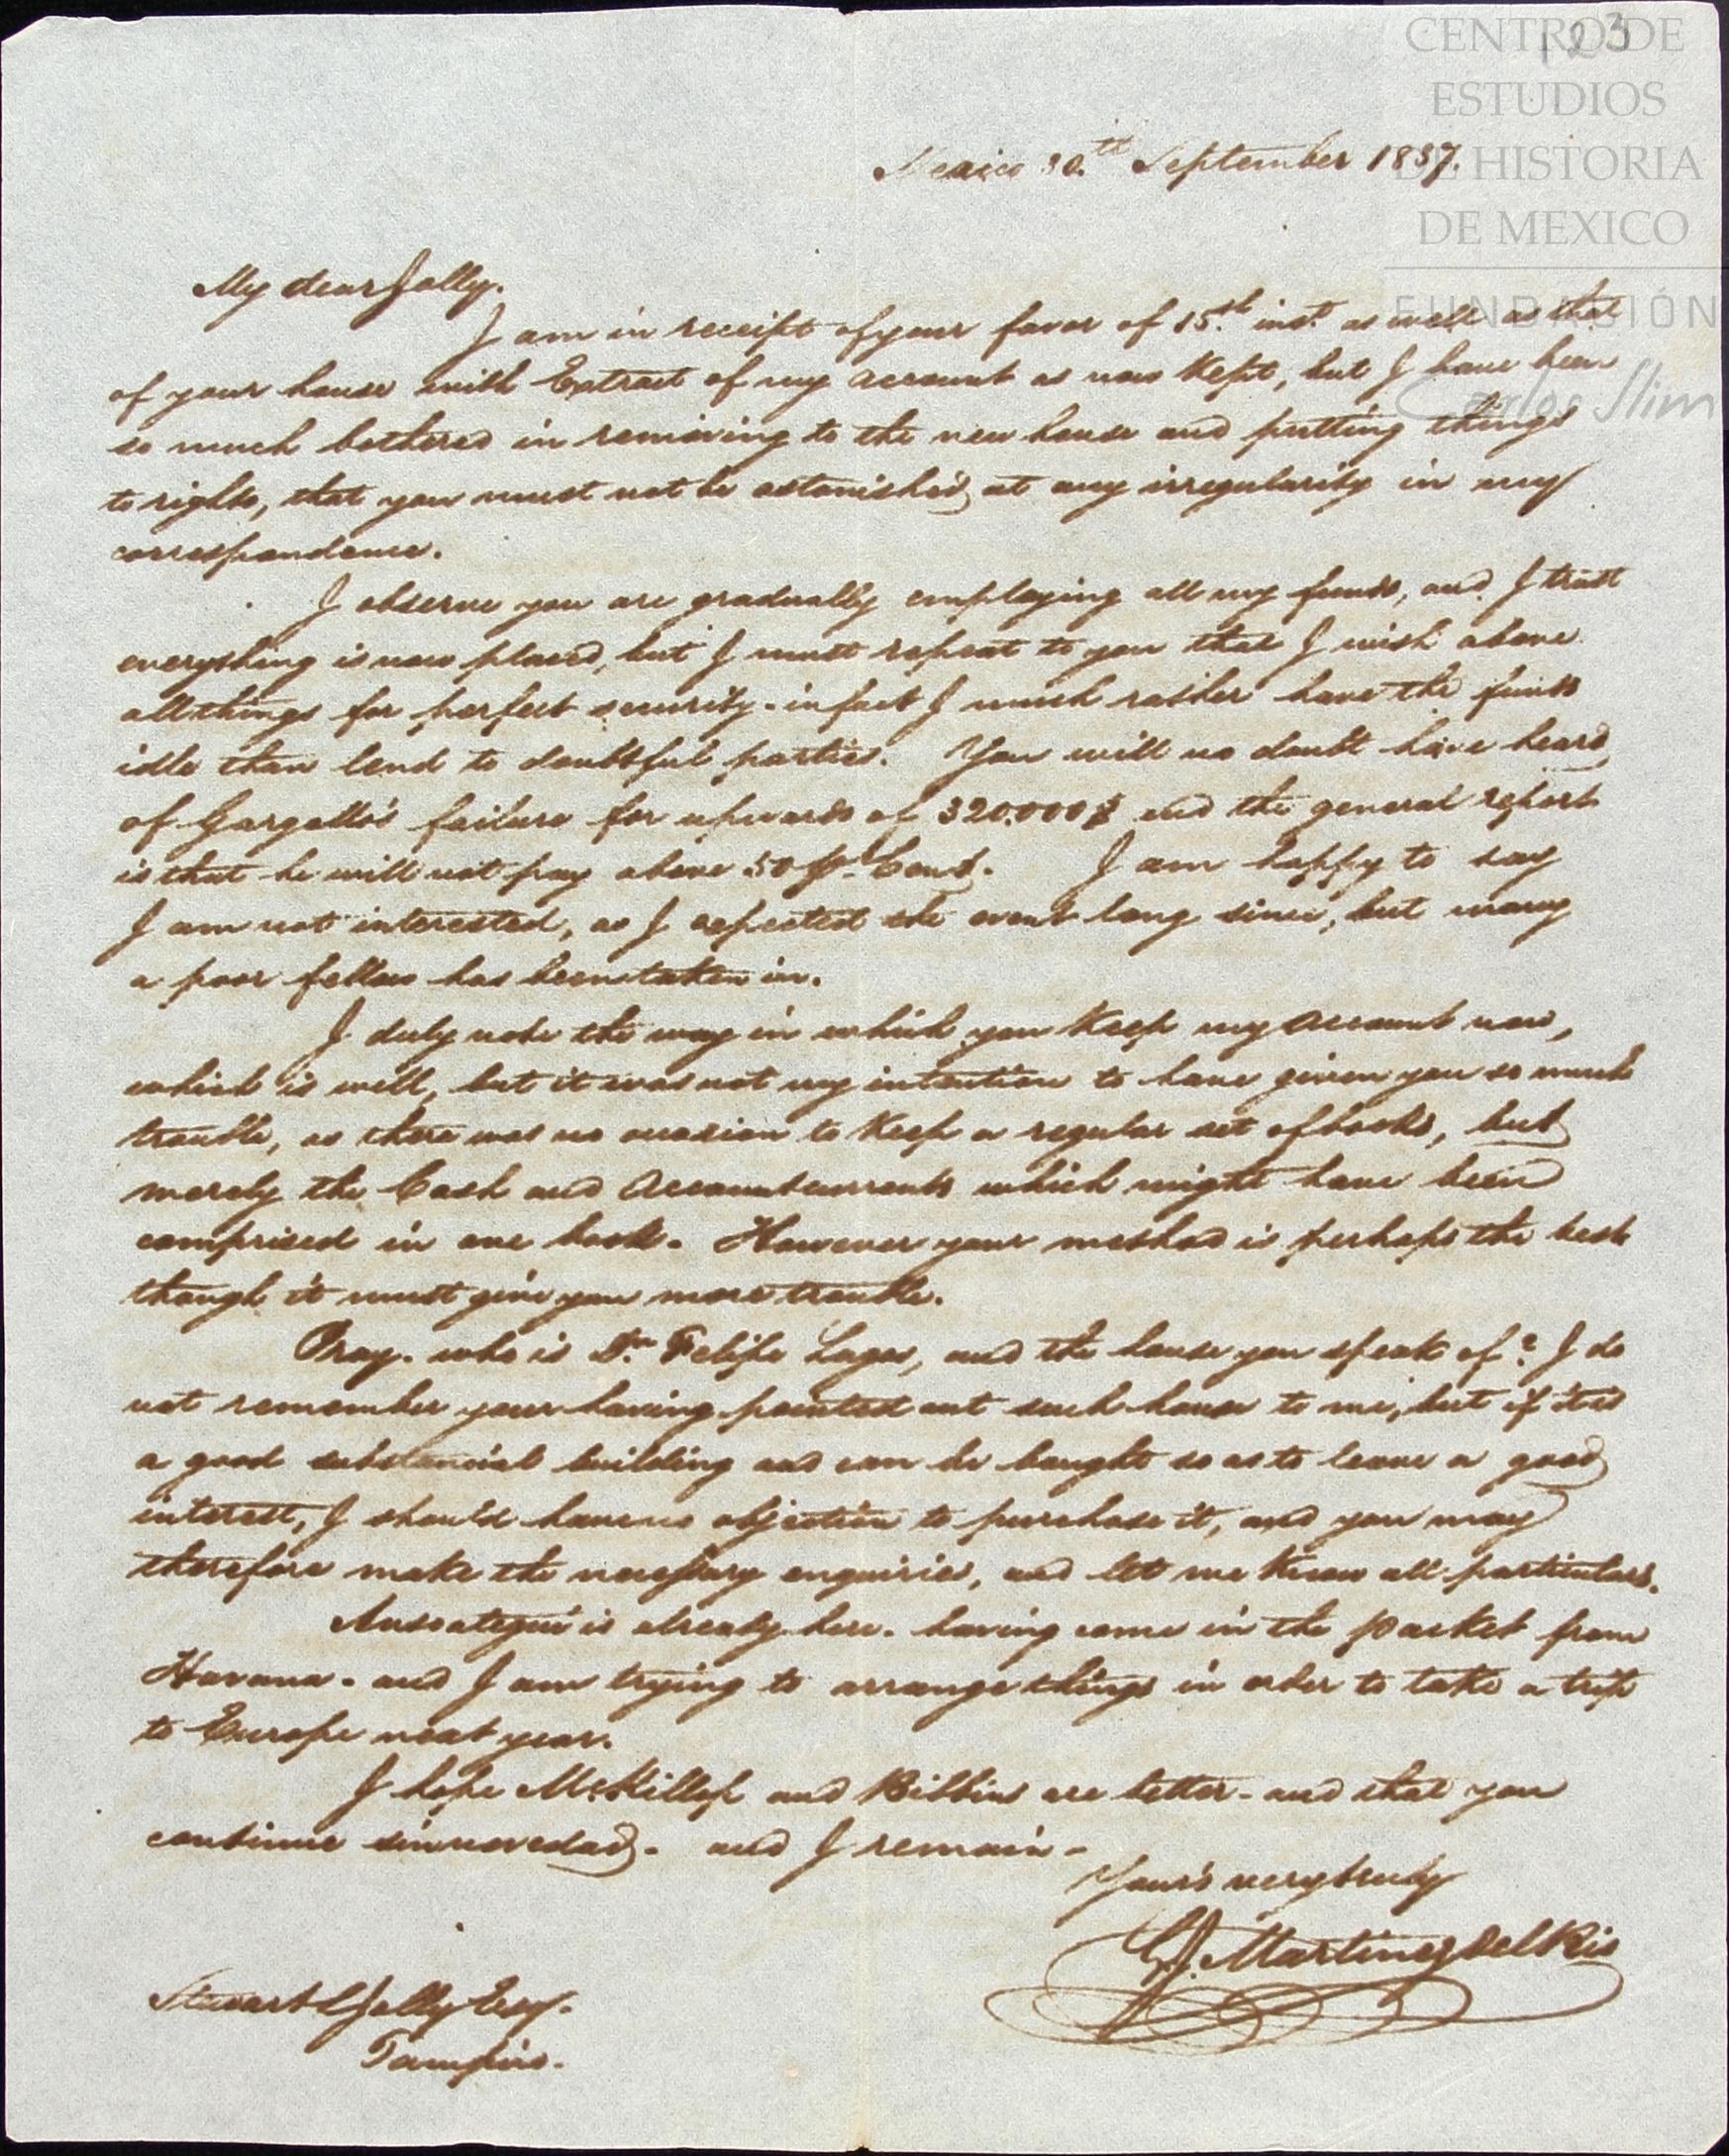 123
CENTRO DE
ESTUDIOS
DE HISTORIA
DE MEXICO
FUNDACIÓN
Carlos Slim
Mexico 30.th September 1837.
My dear Jolly.
I am in receipt of your favor of 15.th inst. as well as that
of your house with Extract of my account as now kept, but I have been
so much bothered in removing to the new house and putting things
to rights, that you must not be astonished at any irregularity in my
correspondence.
I observe you are gradually employing all my funds, and I trust
everything is now placed, but I must repeat to you that I wish above
all things for perfect security - in fact I much rather have the funds
idle than lend to doubtful parties. You will no doubt have heard
of Gargollo's failure for upwards of 320.000$ and the general report
is that he will not pay above 50 pr Cent. I am happy to say
I am not interested, as I expected the event long since, but many
a poor fellow has been taken in.
I duly note the way in which you keep my account now,
which is well, but it was not my intention to have given you so much
trouble, as there was no occasion to keep a regular set of books, but
merely the Cash and Accountcurrents which might have been
comprised in one book. However your method is perhaps the best
though it must give you more trouble.
Pray. who is Dn Felipe Lagos, and the house you speak of? I do
not remember your having pointed out such house to me, but if it is
a good substancial building and can be bought so as to leave a good
interest, I should have no objection to purchase it, and you may
therefore make the necessary enquiries, and let me know all particulars.
Ansoategui is already here. having come in the packet from
Havana - and I am trying to arrange things in order to take a trip
to Europe next year.
I hope McKillop and Bibbins are better - and that you
continue sin novedad. and I remain -
Your's very truly
G. J. Martinez del Rio
Stewart L Jolly Esq.
Tampico.